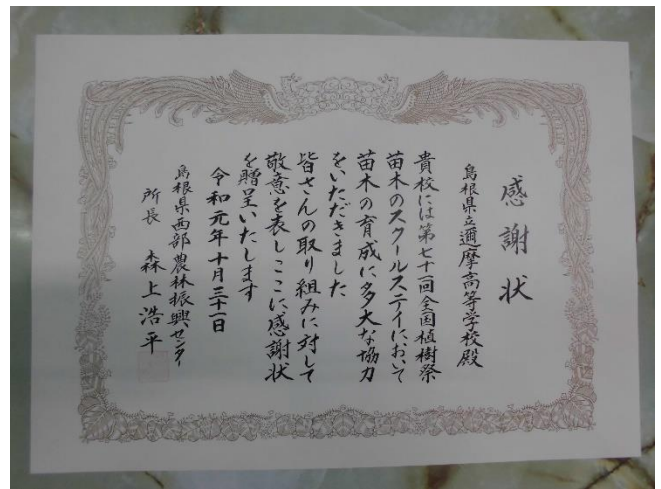 感謝状
島根県立邇摩高等学校殿
貴校には第七十一回全国植樹祭
苗木のスクールステイにおいて
苗木の育成に多大な協力
をいただきました
皆さんの取り組みに対して
敬意を表しここに感謝状
を贈呈いたします
令和元年十月三十一日
島根県西部農林振興センター
所長 森上浩平